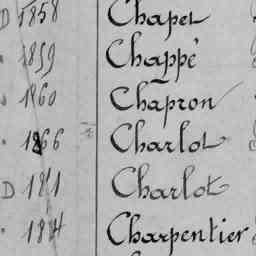 D 1858 Chapel
1859 Chappé
1860 Chapron
1866 Charlot
D 1811 Charlot
Charpentier